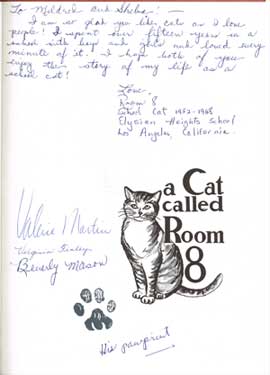 To Mildred and Sheba: —
I am so glad you like cats as I love
people! I spent over fifteen years in a
school with boys and girls and loved every
minute of it. I hope both of you
enjoy the story of my life as a
school cat!
Love,
Room 8
School Cat 1952-1968
Elysian Heights School
Los Angeles, California
a Cat
called
Room
8
Valerie Martin
Virginia Finley
Beverly Mason
His pawprint